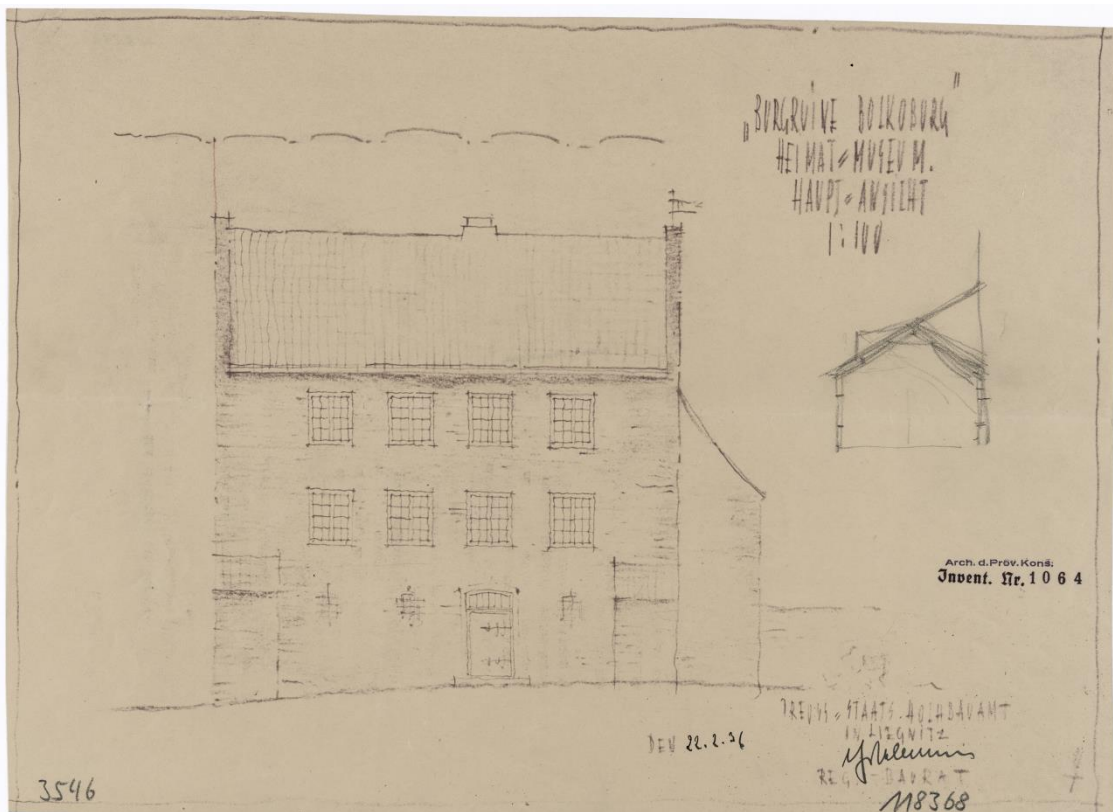 „BURGRUINE BOLKOBURG"
HEIMAT=MUSEUM.
HAUPT=ANSICHT
1:100
Arch. d. Prov. Kons.
Invent. Nr. 1064
PREUSS=STAATS.HOCHBAUAMT
IN LIEGNITZ
REG=BAURAT
DEN 22.2.36
3546
118368